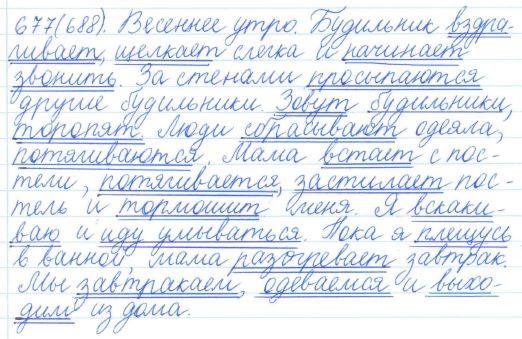 677(688). Весеннее утро. Будильник вздра-
гивает, щелкает слегка и начинает
звонить. За стенами просыпаются
другие будильники. Зовут будильники,
торопят. Люди сбрасывают одеяла,
потягиваются. Мама встает с пос-
тели, потягивается, застилает пос-
тель и тормошит меня. Я вскаки-
ваю и иду умываться. Пока я плещусь
в ванной, мама разогревает завтрак.
Мы завтракаем, одеваемся и выхо-
дим из дома.